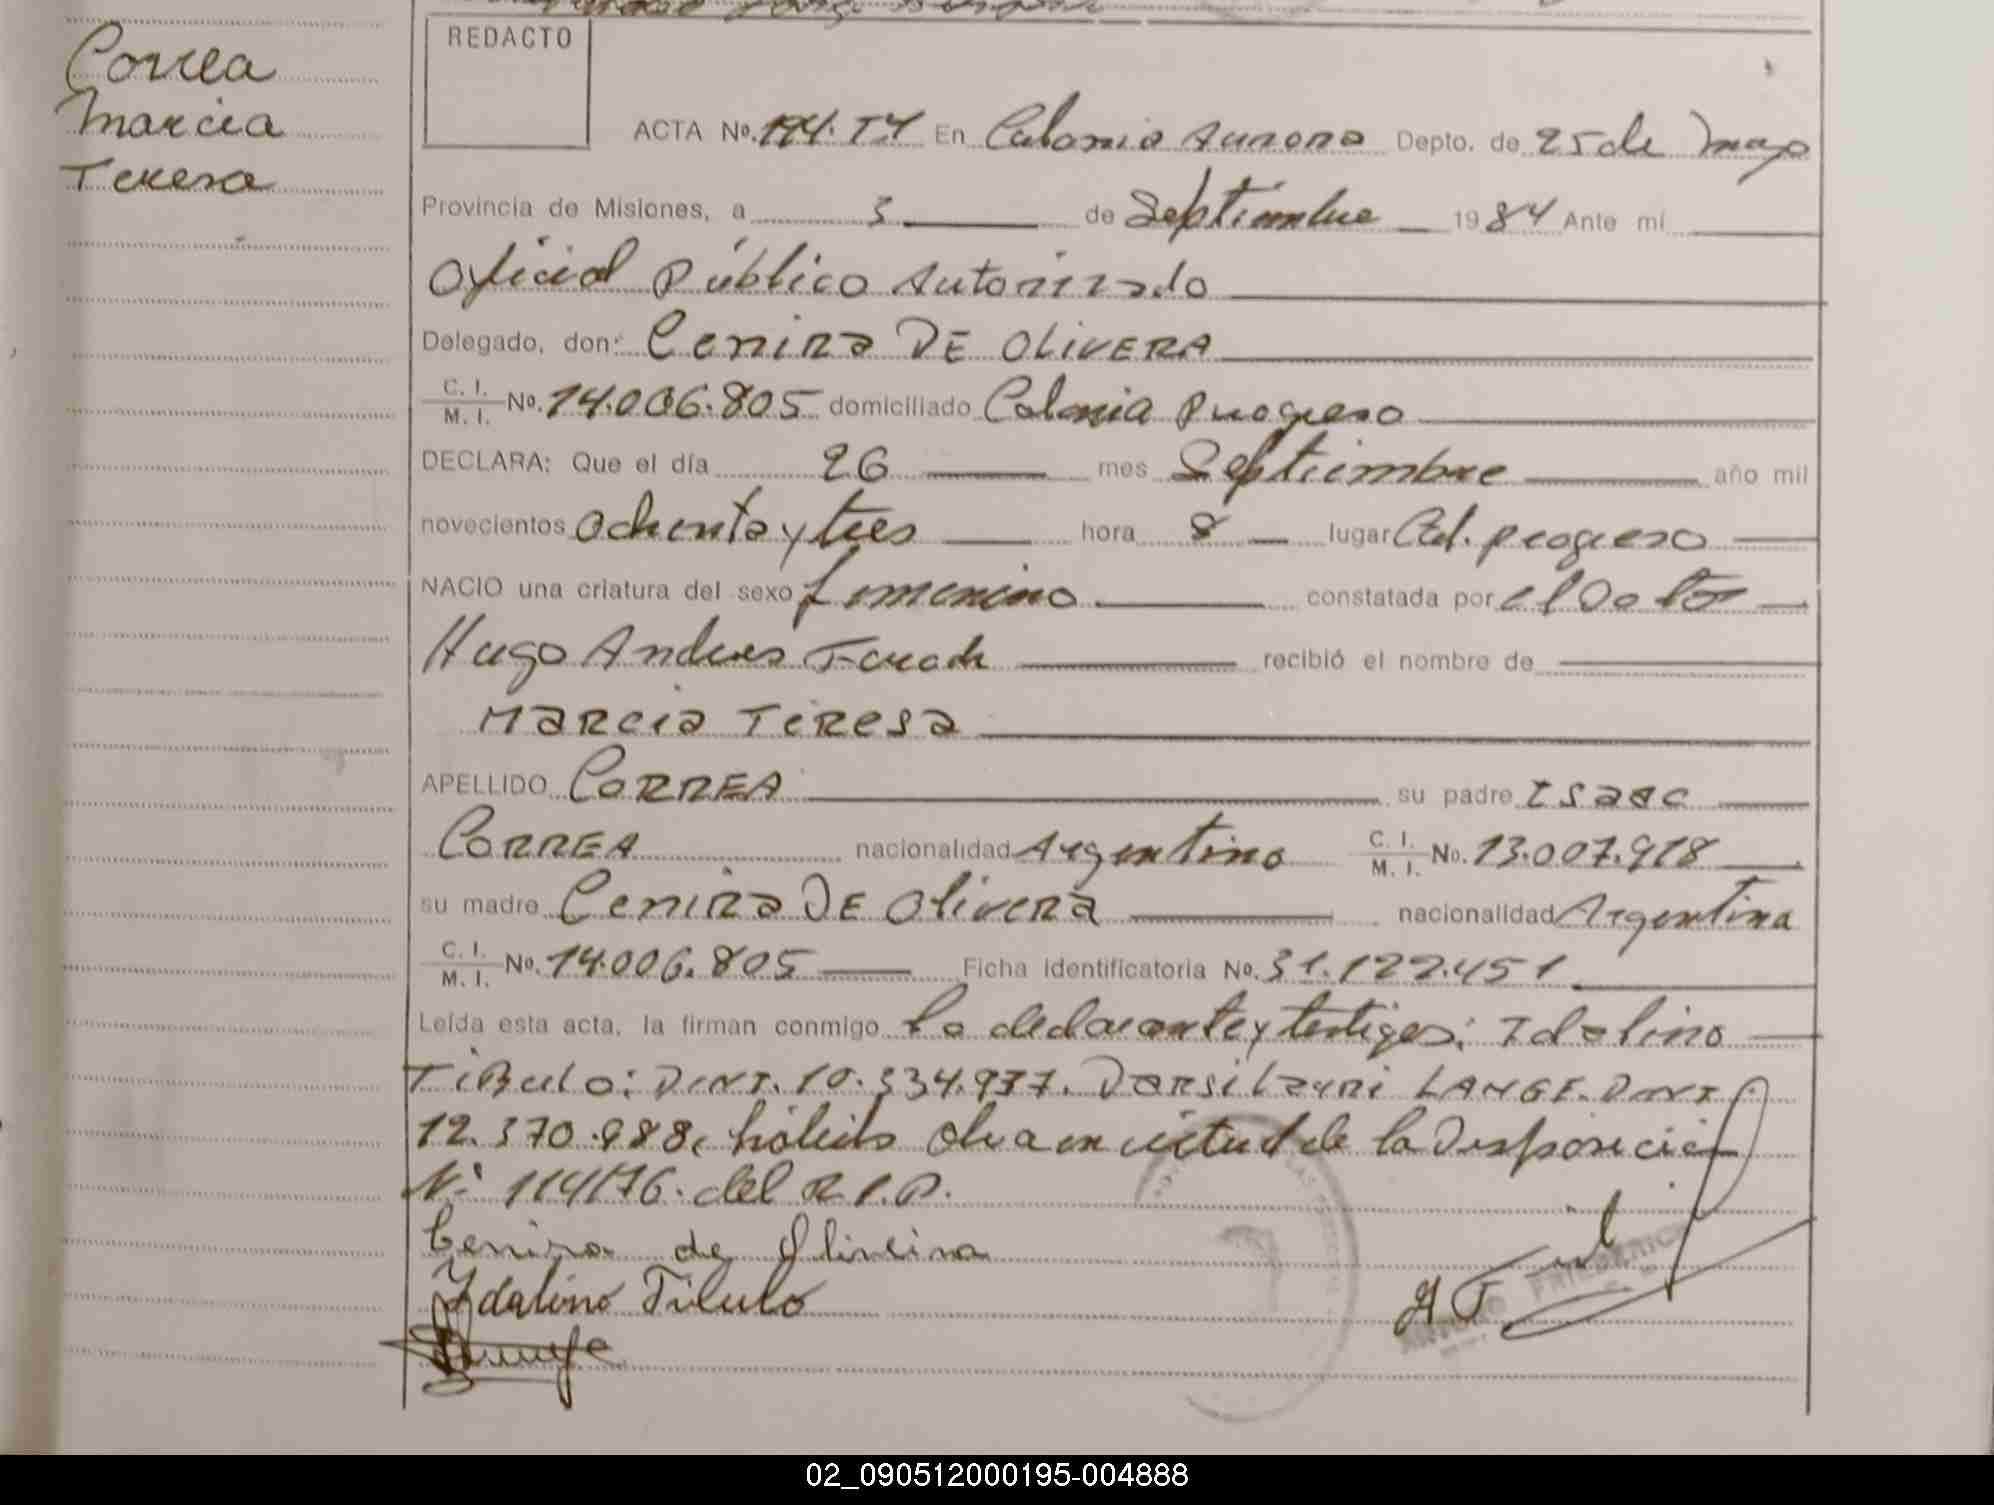 Correa
Marcia
Teresa
REDACTO
ACTA No. 194. T4 En Colonia Aurora Depto. de 25 de Mayo
Provincia de Misiones, a 3 de Septiembre 1984 Ante mí
Oficial Público Autorizado
Delegado, don: Cenira DE OLIVERA
C. I. M. I. No. 14.006.805 domiciliado Colonia Progreso
DECLARA: Que el día 26 mes Septiembre año mil
novecientos ochenta y tres hora 8 lugar Col. progreso
NACIO una criatura del sexo femenino constatada por el Doctor
Hugo Andres recibió el nombre de
Marcia Teresa
APELLIDO CORREA su padre Isaac
CORREA nacionalidad Argentino C. I. M. I. No. 13.007.918
su madre Cenira DE Olivera nacionalidad Argentina
C. I. M. I. No. 14.006.805 Ficha identificatoria No. 31.122.451
Leída esta acta, la firman conmigo La declarante y testigos: Idalino
Tibulo: D.N.I. 10.334.937. LANGE. D.N.I
12.370.988, hábiles en virtud de la Disposición
N: 114/76. del R.P.
Cenira de Oliveira
Idalino Tibulo
FRIEDRICH
02_090512000195-004888